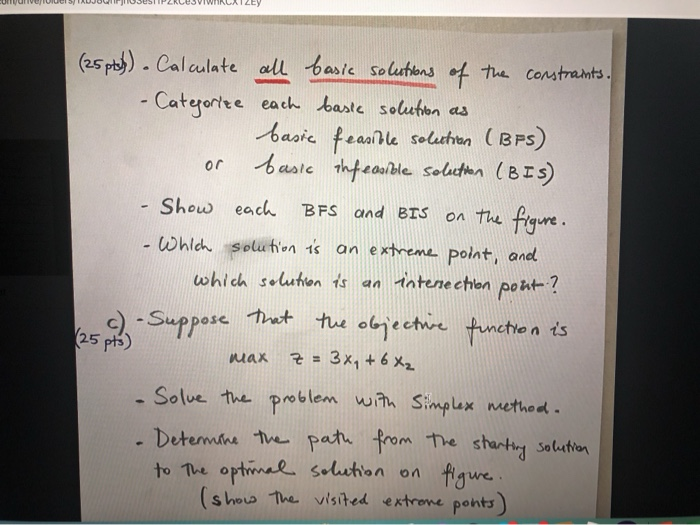 (25 pts) b) . Calculate all basic solutions of the constraints.
- Categorize each basic solution as
basic feasible solution (BFS)
or basic infeasible solution (BIS)
- Show each BFS and BIS on the figure.
- Which solution is an extreme point, and
which solution is an intersection point?
c) - Suppose that the objective function is
(25 pts)
max z = 3x₁ + 6x₂
- Solve the problem with Simplex method.
- Determine the path from the starting solution
to the optimal solution on figure.
(show the visited extreme points)